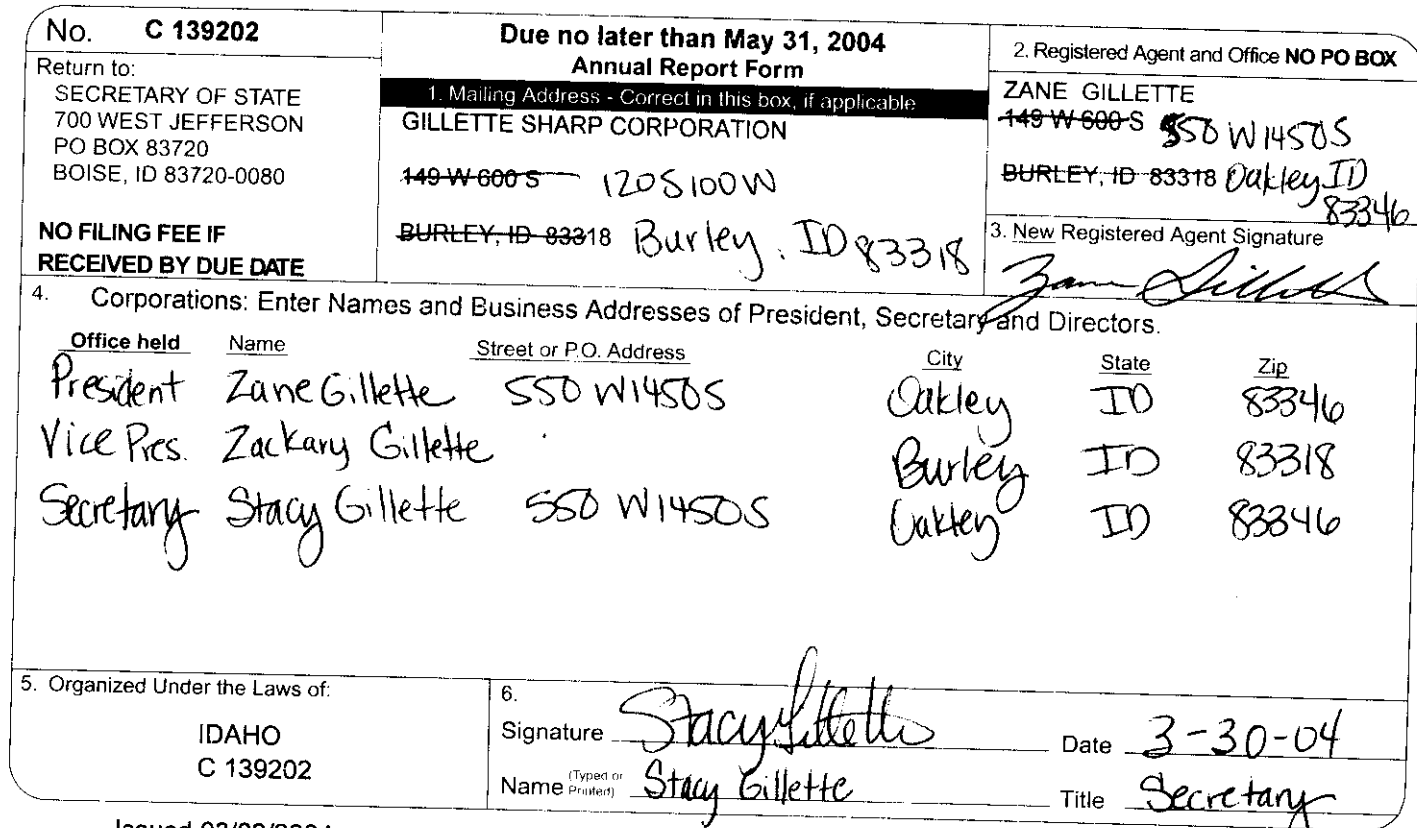 No. C 139202
Return to:
SECRETARY OF STATE
700 WEST JEFFERSON
PO BOX 83720
BOISE, ID 83720-0080
NO FILING FEE IF
RECEIVED BY DUE DATE
Due no later than May 31, 2004
Annual Report Form
1. Mailing Address - Correct in this box, if applicable
GILLETTE SHARP CORPORATION
149 W 600 S 120 S 100 W
BURLEY, ID 83318 Burley, ID 83318
2. Registered Agent and Office NO PO BOX
ZANE GILLETTE
149 W 600 S 550 W 1450 S
BURLEY, ID 83318 Oakley ID
83346
3. New Registered Agent Signature
Zane Gillette
4. Corporations: Enter Names and Business Addresses of President, Secretary and Directors.
Office held Name Street or P.O. Address City State Zip
President Zane Gillette 550 W 1450 S Oakley ID 83346
Vice Pres. Zackary Gillette Burley ID 83318
Secretary Stacy Gillette 550 W 1450 S Oakley ID 83346
5. Organized Under the Laws of:
IDAHO
C 139202
6.
Signature Stacy Gillette Date 3-30-04
Name (Typed or Printed) Stacy Gillette Title Secretary
Issued